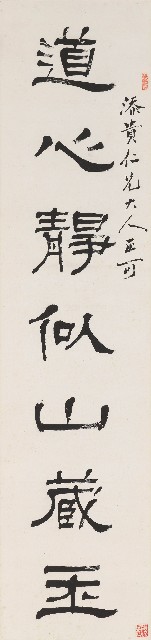 添貴仁兄大人正可
道心靜似山藏玉